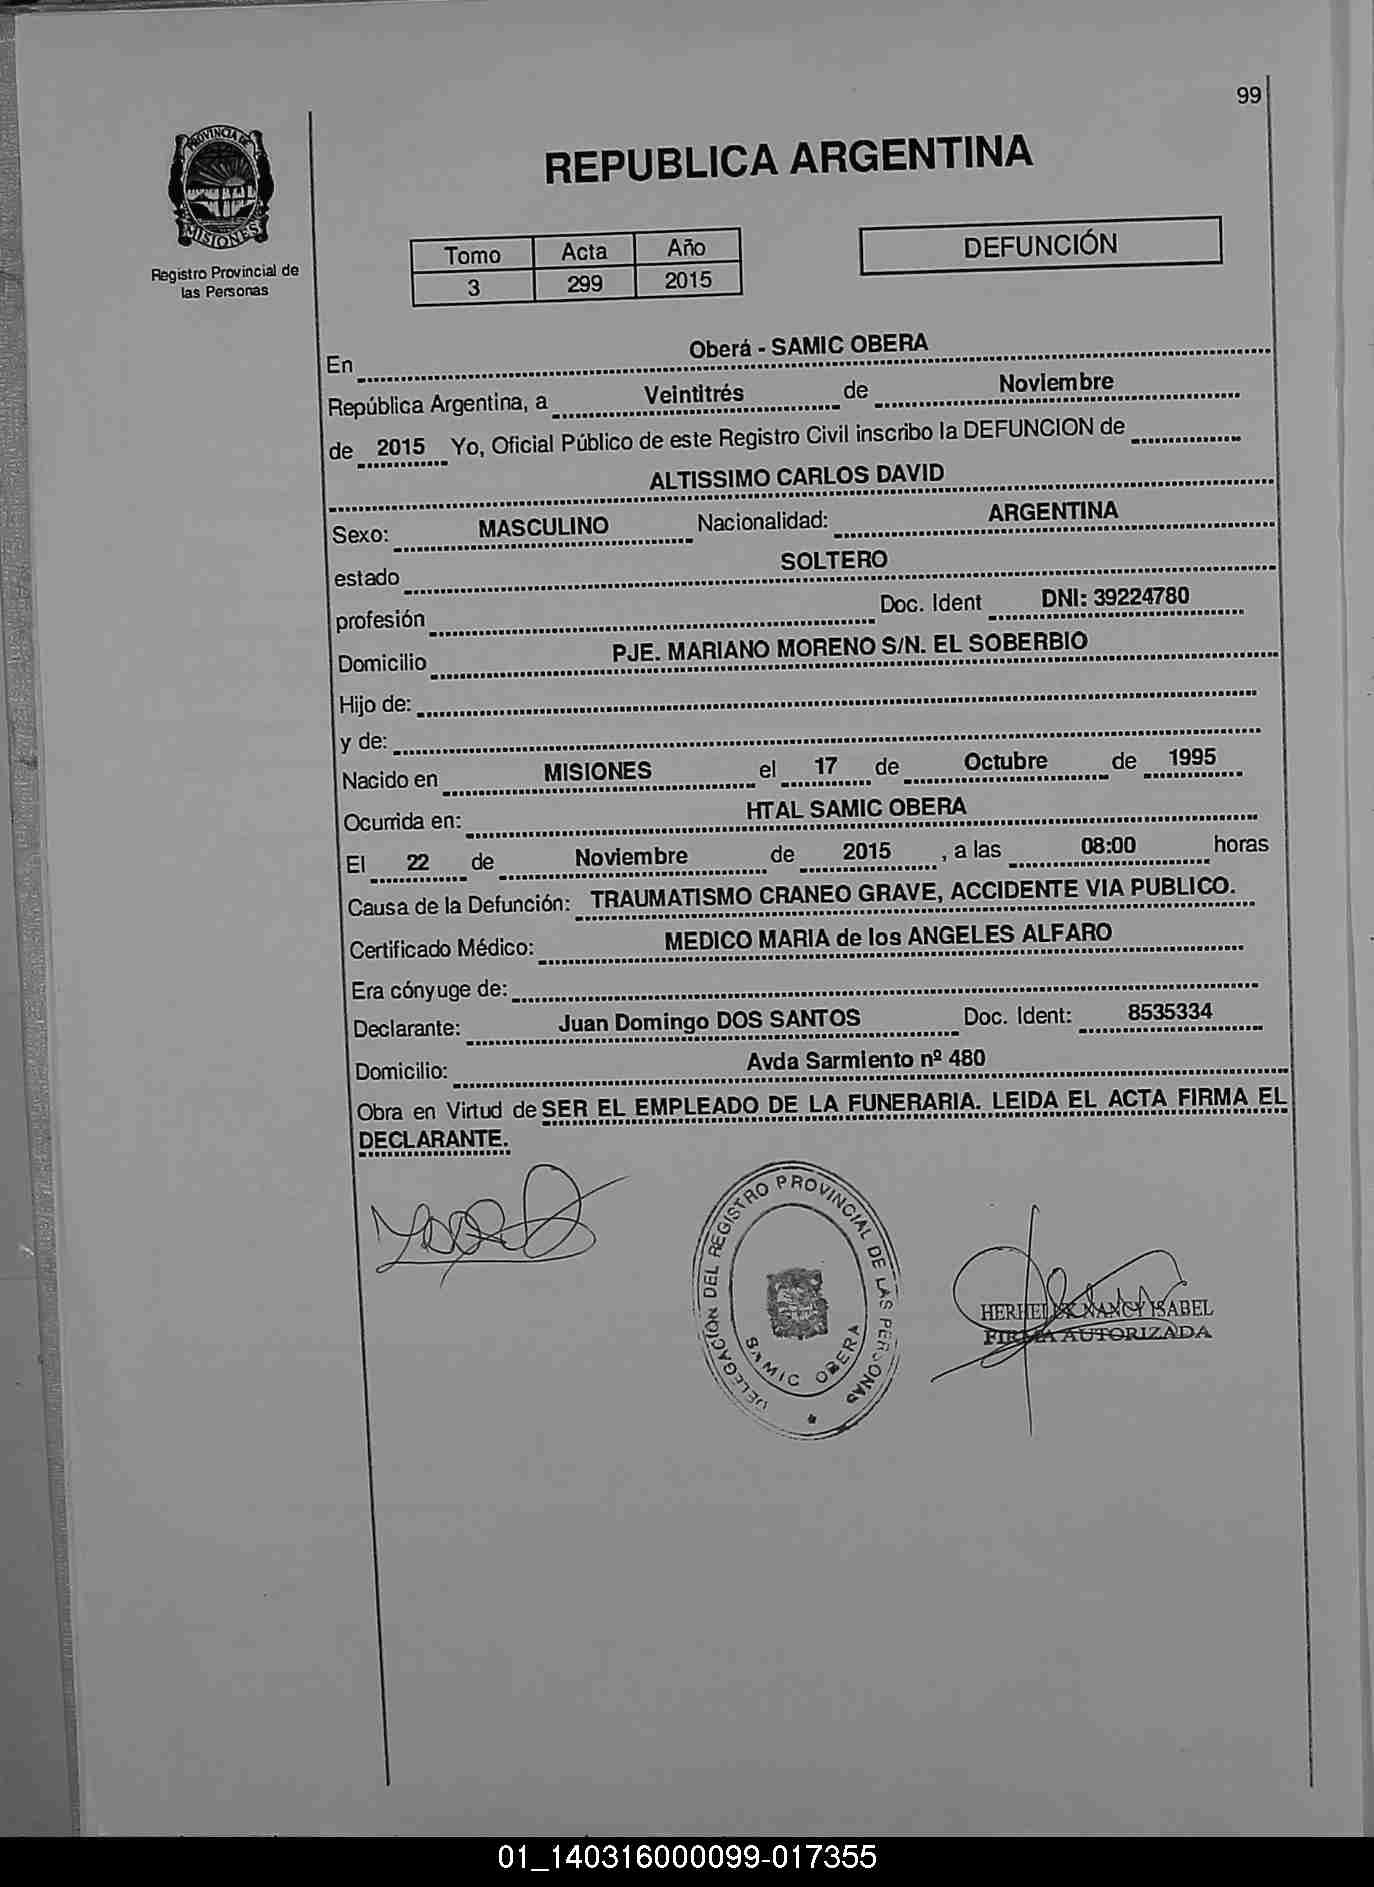 99
PROVINCIA DE
MISIONES
Registro Provincial de
las Personas
REPUBLICA ARGENTINA
Tomo Acta Año
3 299 2015
DEFUNCIÓN
En Oberá - SAMIC OBERA
República Argentina, a Veintitrés de Noviembre
de 2015 Yo, Oficial Público de este Registro Civil inscribo la DEFUNCION de
ALTISSIMO CARLOS DAVID
Sexo: MASCULINO Nacionalidad: ARGENTINA
estado SOLTERO
profesión Doc. Ident DNI: 39224780
Domicilio PJE. MARIANO MORENO S/N. EL SOBERBIO
Hijo de:
y de:
Nacido en MISIONES el 17 de Octubre de 1995
Ocurrida en: HTAL SAMIC OBERA
El 22 de Noviembre de 2015 , a las 08:00 horas
Causa de la Defunción: TRAUMATISMO CRANEO GRAVE, ACCIDENTE VIA PUBLICO.
Certificado Médico: MEDICO MARIA de los ANGELES ALFARO
Era cónyuge de:
Declarante: Juan Domingo DOS SANTOS Doc. Ident: 8535334
Domicilio: Avda Sarmiento nº 480
Obra en Virtud de SER EL EMPLEADO DE LA FUNERARIA. LEIDA EL ACTA FIRMA EL
DECLARANTE.
DELEGACION DEL REGISTRO PROVINCIAL DE LAS PERSONAS
SAMIC OBERA
NANCY ISABEL
FIRMA AUTORIZADA
01_140316000099-017355